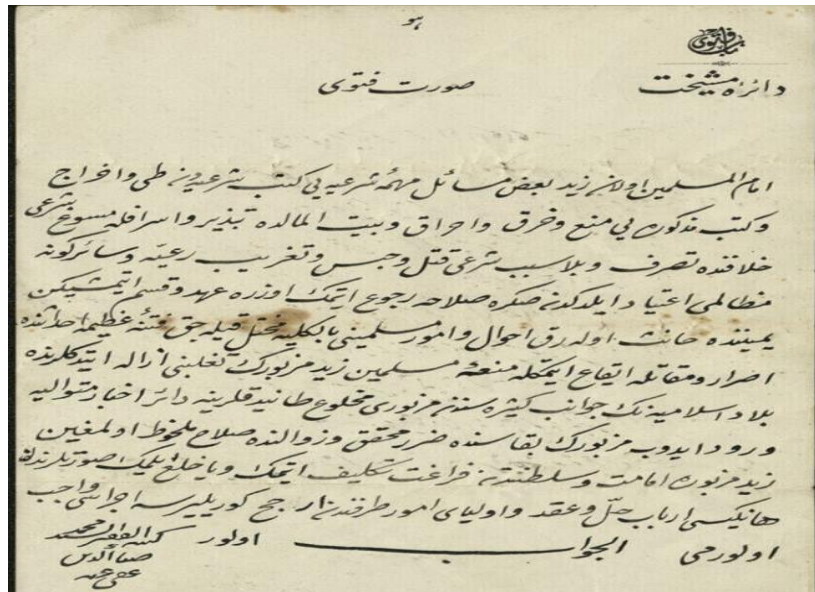 هو
باب فتوى
دائرهٔ مشيخت
صورت فتوى
امام المسلمين اولان زيد بعض مسائل مهمهٔ شرعيه يى كتب شرعيه دن طى واخراج
وكتب مذكوره يى منع وخرق واحراق وبيت المالده تبذير واسرافله مسوغ شرعى
خلافنده تصرف وبلا سبب شرعى قتل وحبس وتغريب رعيه وسائر كونه
مظالمى اعتياد ايلدكدن صكره صلاحه رجوع ايتمك اوزره عهد وقسم ايتمشيكن
يميننده حانث اوله رق احوال وامور مسلمينى بالكليه مختل قيله جق فتنهٔ عظيمه احداثنده
اصرار ومقاتله ايقاع ايتمكله منعهٔ مسلمين زيد مزبورك تغلبنى ازاله ايتدكلرنده
بلاد اسلاميه نك جوانب كثيره سندن مزبورى مخلوع طانيدقلرينه دائر اخبار متواليه
ورود ايدوب مزبورك بقاسنده ضرر محقق وزوالنده صلاح ملحوظ اولمغين
زيد مزبوره امامت وسلطنتدن فراغت تكليف ايتمك ويا خلع ايلمك صورتلرندن
هانكيسى ارباب حل وعقد واولياى امور طرفندن ارجح كوريليرسه اجراسى واجب
اولورمى الجواب اولور
كتبه الفقير السيد محمد
ضياء الدين
عفى عنه